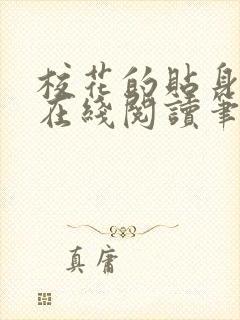 校花的貼身
在綫閱讀筆
真庸